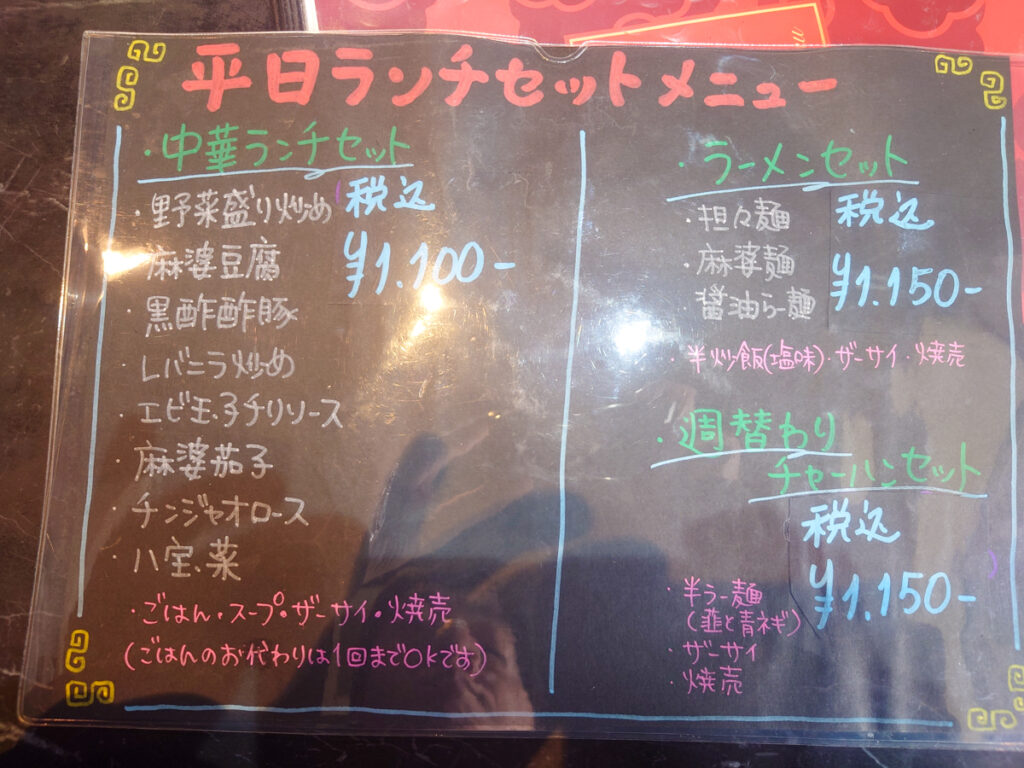 平日ランチセットメニュー
・中華ランチセット
・野菜盛り炒め
税込
¥1.100-
・麻婆豆腐
・黒酢酢豚
・レバニラ炒め
・エビ玉子チリソース
・麻婆茄子
・チンジャオロース
・八宝菜
・ごはん・スープ・ザーサイ・焼売
(ごはんのお代わりは1回までOKです)
・ラーメンセット
・担々麺
税込
¥1.150-
・麻婆麺
・醤油らー麺
・半炒飯(塩味)・ザーサイ・焼売
・週替わり
チャーハンセット
税込
¥1.150-
・半らー麺
(韮と青ネギ)
・ザーサイ
・焼売